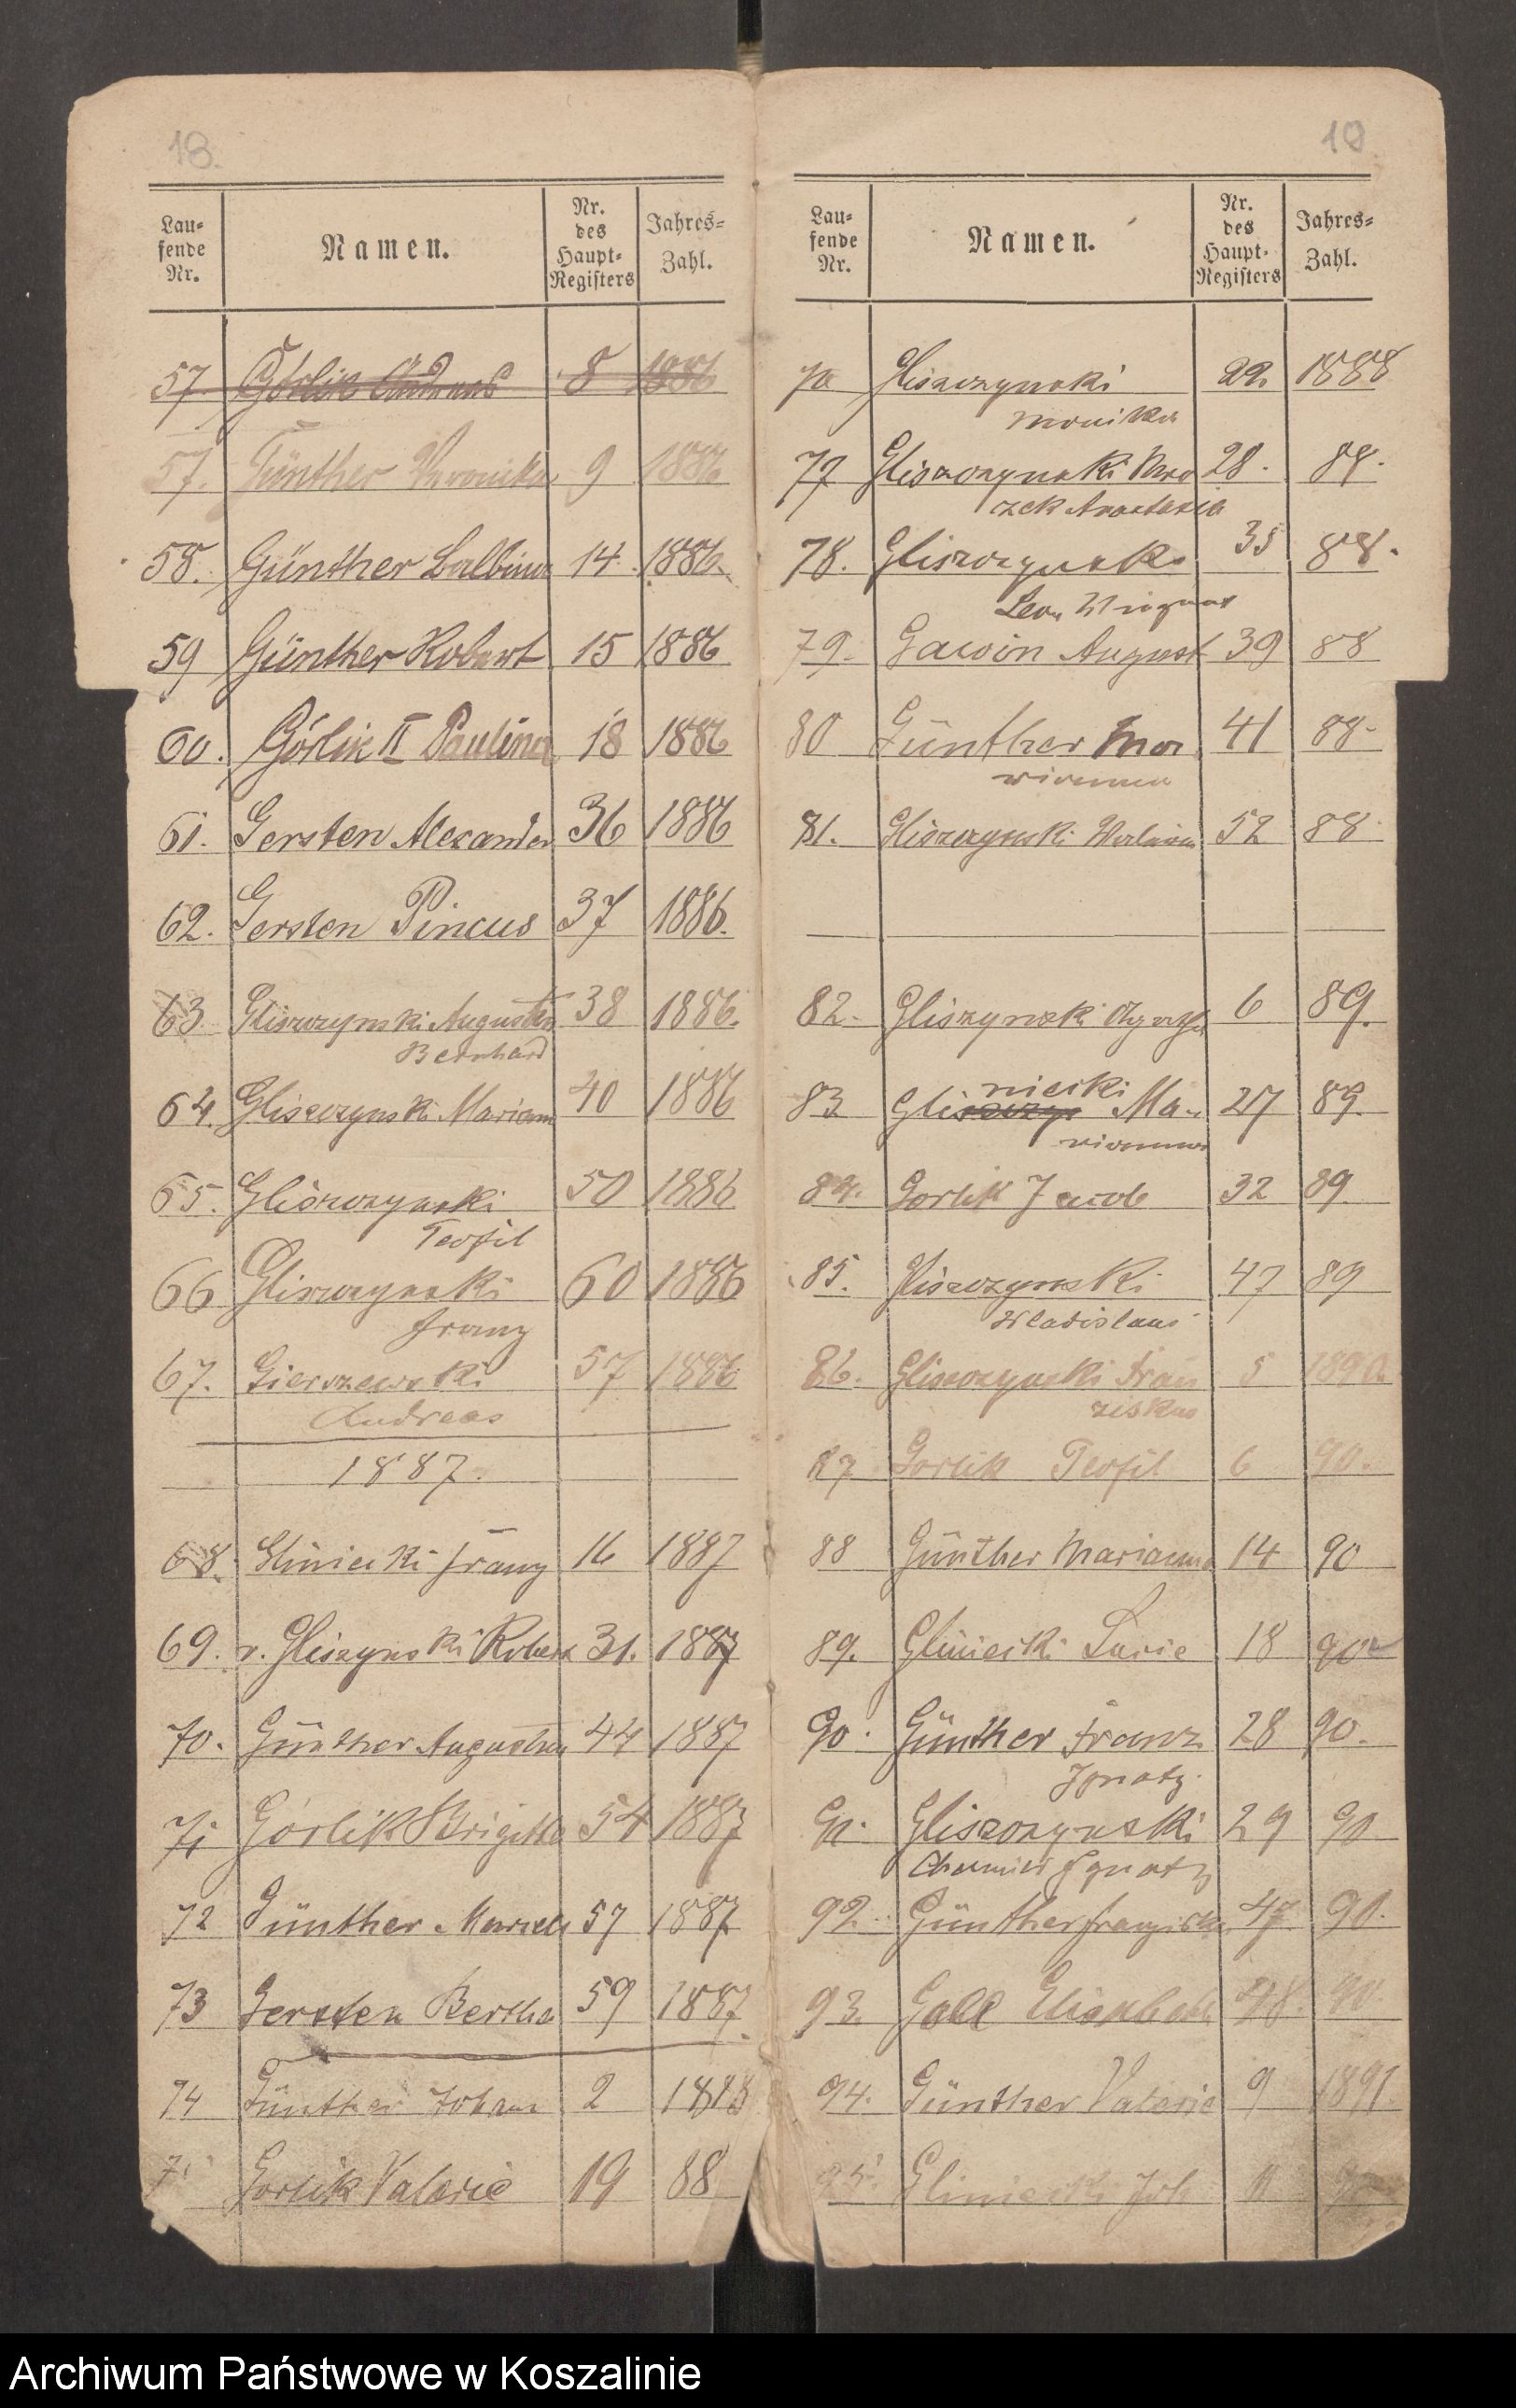 18.
Lau-
fende
Nr.
Namen.
Nr.
des
Haupt-
Registers
Jahres-
Zahl.
57 Görlik Andreas 8 1886
57. Günther Veronika 9 1886
58. Günther Balbina 14. 1886.
59 Günther Robert 15 1886
60. Görlik II Paulina 18 1886
61. Gersten Alexander 36 1886
62. Gersten Pincus 37 1886.
63. Gliszczynski Augustin 38 1886.
Bernhard
64. Gliszczynski Mariann 40 1886
65. Gliszczynski 50 1886
Teofil
66 Gliszczynski 60 1886
Franz
67. Gierszewski 57 1886
Andreas
1887.
68. Gliniecki Franz 16 1887
69. v. Gliszynski Robert 31. 1887
70. Günther Augustin 44 1887
71 Görlik Brigitta 54 1887
72 Günther 57 1887
73 Gersten Bertha 59 1887.
74 Günther Johann 2 1888
Gorlik Valerie 19 88
19
Lau-
fende
Nr.
Namen.
Nr.
des
Haupt-
Registers
Jahres-
Zahl.
Gliszczynski 22. 1888
Monika
77 Gliszczynski Mro 28. 88.
czek Anastasia
78. Gliszczynski 35 88.
Leon
79. Gawin August 39 88
80 Günther Ma 41 88.
rianna
81. Gliszczynski 52 88
82. Gliszynski 6 89.
83 Gliszczyn niecki Ma- 27 89.
rianna
84. Gorlik Jacob 32 89
85. Gliszczynski 47 89
Wladislaus
86. Gliszczynski Fran 5 1890.
ziskus
87 Gorlik Teofil 6 90.
88 Günther Marianna 14 90
89. Gliniecki Lucie 18 90
90. Günther Franz 28 90.
Ignatz.
91. Gliszczynski 29 90
Ignatz
92. Günther Franziska 47. 90.
93. Gall Elisabeth 48. 90.
94. Günther Valerie 9 1891.
95. Gliniecki Joh 11
Archiwum Państwowe w Koszalinie